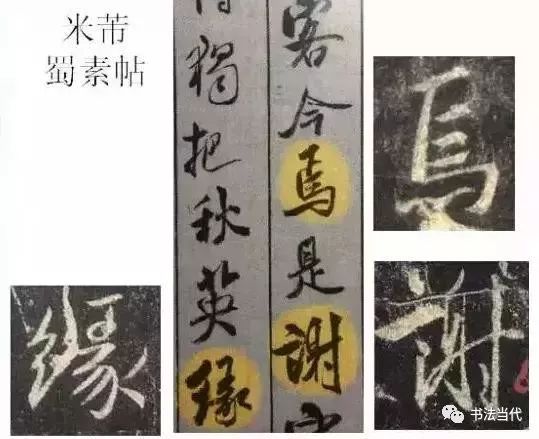 米芾
蜀素帖
客今焉是謝
獨把秋英緣
焉
謝
緣
书法当代